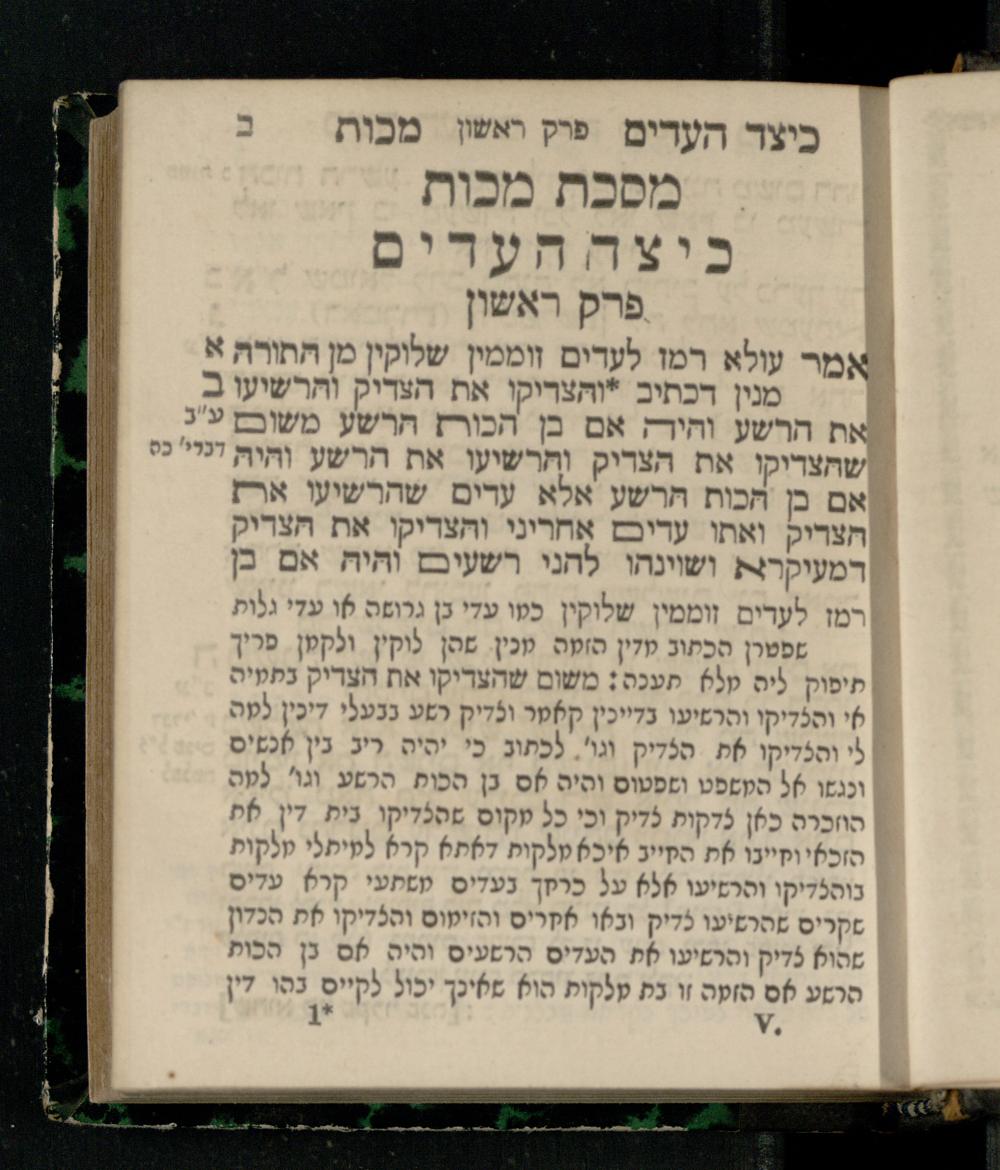 כיצד העדים פרק ראשון מכות ב
מסכת מכות
כיצד העדים
פרק ראשון
אמר עולא רמז לעדים זוממין שלוקין מן התורה א
מנין דכתיב *והצדיקו את הצדיק והרשיעו ב
את הרשע והיה אם בן הכות הרשע משום ע"ב
שהצדיקו את הצדיק והרשיעו את הרשע והיה דברי' כה
אם בן הכות הרשע אלא עדים שהרשיעו את
הצדיק ואתו עדים אחריני והצדיקו את הצדיק
דמעיקרא ושוינהו להני רשעים והיה אם בן
רמז לעדים זוממין שלוקין כמו עדי בן גרושה או עדי גלות
שפטרן הכתוב מדין הזמה מנין שהן לוקין ולקמן פריך
תיפוק ליה מלא תענה: משום שהצדיקו את הצדיק בתמיה
אי והצדיקו והרשיעו בדייכין קאמר וצדיק רשע בבעלי דיכין למה
לי והצדיקו את הצדיק וגו'. לכתוב כי יהיה ריב בין אנשים
ונגשו אל המשפט ושפטום והיה אם בן הכות הרשע וגו' למה
הוזכרה כאן צדקות צדיק וכי כל מקום שהצדיקו בית דין את
הזכאי וחייבו את החייב איכא מלקות דאתא קרא למיתלי מלקות
בוהצדיקו והרשיעו אלא על כרחך בעדים משתעי קרא עדים
שקרים שהרשיעו צדיק ובאו אחרים והזימום והצדיקו את הנדון
שהוא צדיק והרשיעו את העדים הרשעים והיה אם בן הכות
הרשע אם הזמה זו בת מלקות הוא שאינך יכול לקיים בהו דין
V. 1*